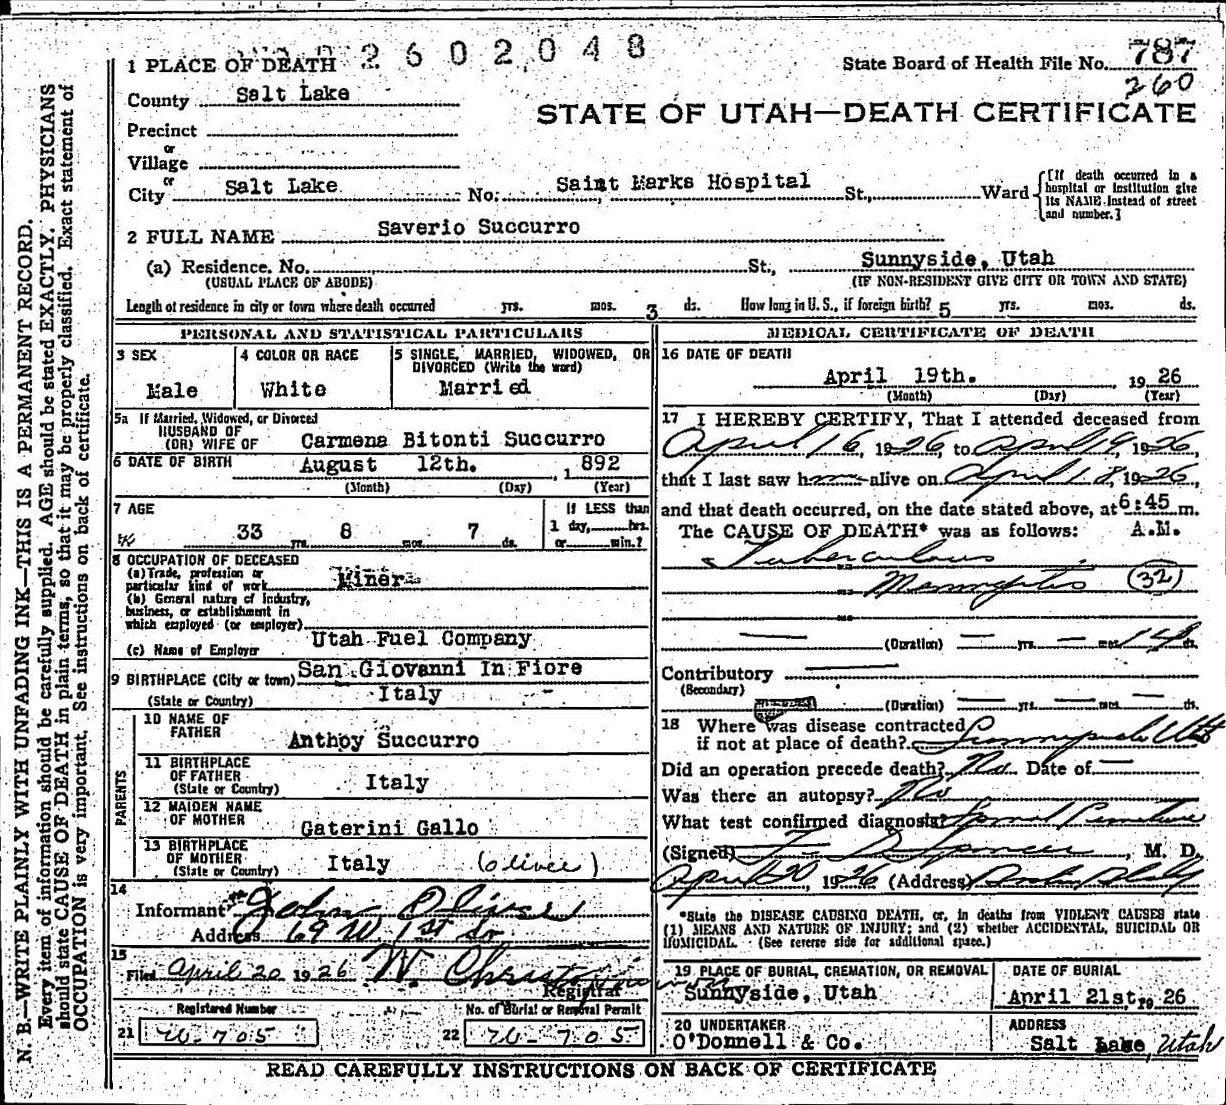 2602048
1 PLACE OF DEATH
State Board of Health File No. 787
260
County Salt Lake
STATE OF UTAH—DEATH CERTIFICATE
Precinct
or
Village
or
City Salt Lake No. Saint Marks Hospital St., Ward
[If death occurred in a hospital or institution give its NAME instead of street and number.]
2 FULL NAME Saverio Succurro
(a) Residence. No. St., Sunnyside, Utah
(USUAL PLACE OF ABODE) (IF NON-RESIDENT GIVE CITY OR TOWN AND STATE)
Length of residence in city or town where death occurred yrs. mos. 3 ds. How long in U. S., if foreign birth? 5 yrs. mos. ds.
PERSONAL AND STATISTICAL PARTICULARS
3 SEX
Male
4 COLOR OR RACE
White
5 SINGLE, MARRIED, WIDOWED, OR
DIVORCED (Write the word)
Married
5a If Married, Widowed, or Divorced
HUSBAND OF
(OR) WIFE OF Carmena Bitonti Succurro
6 DATE OF BIRTH August 12th. , 1892
(Month) (Day) (Year)
7 AGE
33 yrs. 8 mos. 7 ds.
If LESS than
1 day, hrs.
or min.?
8 OCCUPATION OF DECEASED
(a) Trade, profession or
particular kind of work Miner
(b) General nature of Industry,
business, or establishment in
which employed (or employer)
(c) Name of Employer Utah Fuel Company
9 BIRTHPLACE (City or town) San Giovanni In Fiore
(State or Country) Italy
PARENTS
10 NAME OF
FATHER Anthoy Succurro
11 BIRTHPLACE
OF FATHER
(State or Country) Italy
12 MAIDEN NAME
OF MOTHER Gaterini Gallo
13 BIRTHPLACE
OF MOTHER
(State or Country) Italy (olivee)
14
Informant John Olivee
Address 69 W. 1st So
15
Filed April 20 1926 W. Christ
Registrar
Registered Number No. of Burial or Removal Permit
21 705 22 705
MEDICAL CERTIFICATE OF DEATH
16 DATE OF DEATH
April 19th. , 1926
(Month) (Day) (Year)
17 I HEREBY CERTIFY, That I attended deceased from
April 16, 1926, to April 19, 1926,
that I last saw h alive on April 18, 1926,
and that death occurred, on the date stated above, at 6:45 m.
The CAUSE OF DEATH* was as follows: A.M.
Tuberculous
Meningitis (32)
(Duration) yrs. mos. 14 ds.
Contributory
(Secondary)
(Duration) yrs. mos. ds.
18 Where was disease contracted
if not at place of death? Sunnyside Utah
Did an operation precede death? No Date of
Was there an autopsy? No
What test confirmed diagnosis? Spinal Puncture
(Signed) F D Spencer, M. D.
April 20, 1926 (Address)
*State the DISEASE CAUSING DEATH, or, in deaths from VIOLENT CAUSES state
(1) MEANS AND NATURE OF INJURY; and (2) whether ACCIDENTAL, SUICIDAL OR
HOMICIDAL. (See reverse side for additional space.)
19 PLACE OF BURIAL, CREMATION, OR REMOVAL
Sunnyside, Utah
DATE OF BURIAL
April 21st, 19 26
20 UNDERTAKER
O'Donnell & Co.
ADDRESS
Salt Lake, Utah
READ CAREFULLY INSTRUCTIONS ON BACK OF CERTIFICATE
N. B.—WRITE PLAINLY WITH UNFADING INK—THIS IS A PERMANENT RECORD.
Every item of information should be carefully supplied. AGE should be stated EXACTLY. PHYSICIANS
should state CAUSE OF DEATH in plain terms, so that it may be properly classified. Exact statement of
OCCUPATION is very important. See instructions on back of certificate.